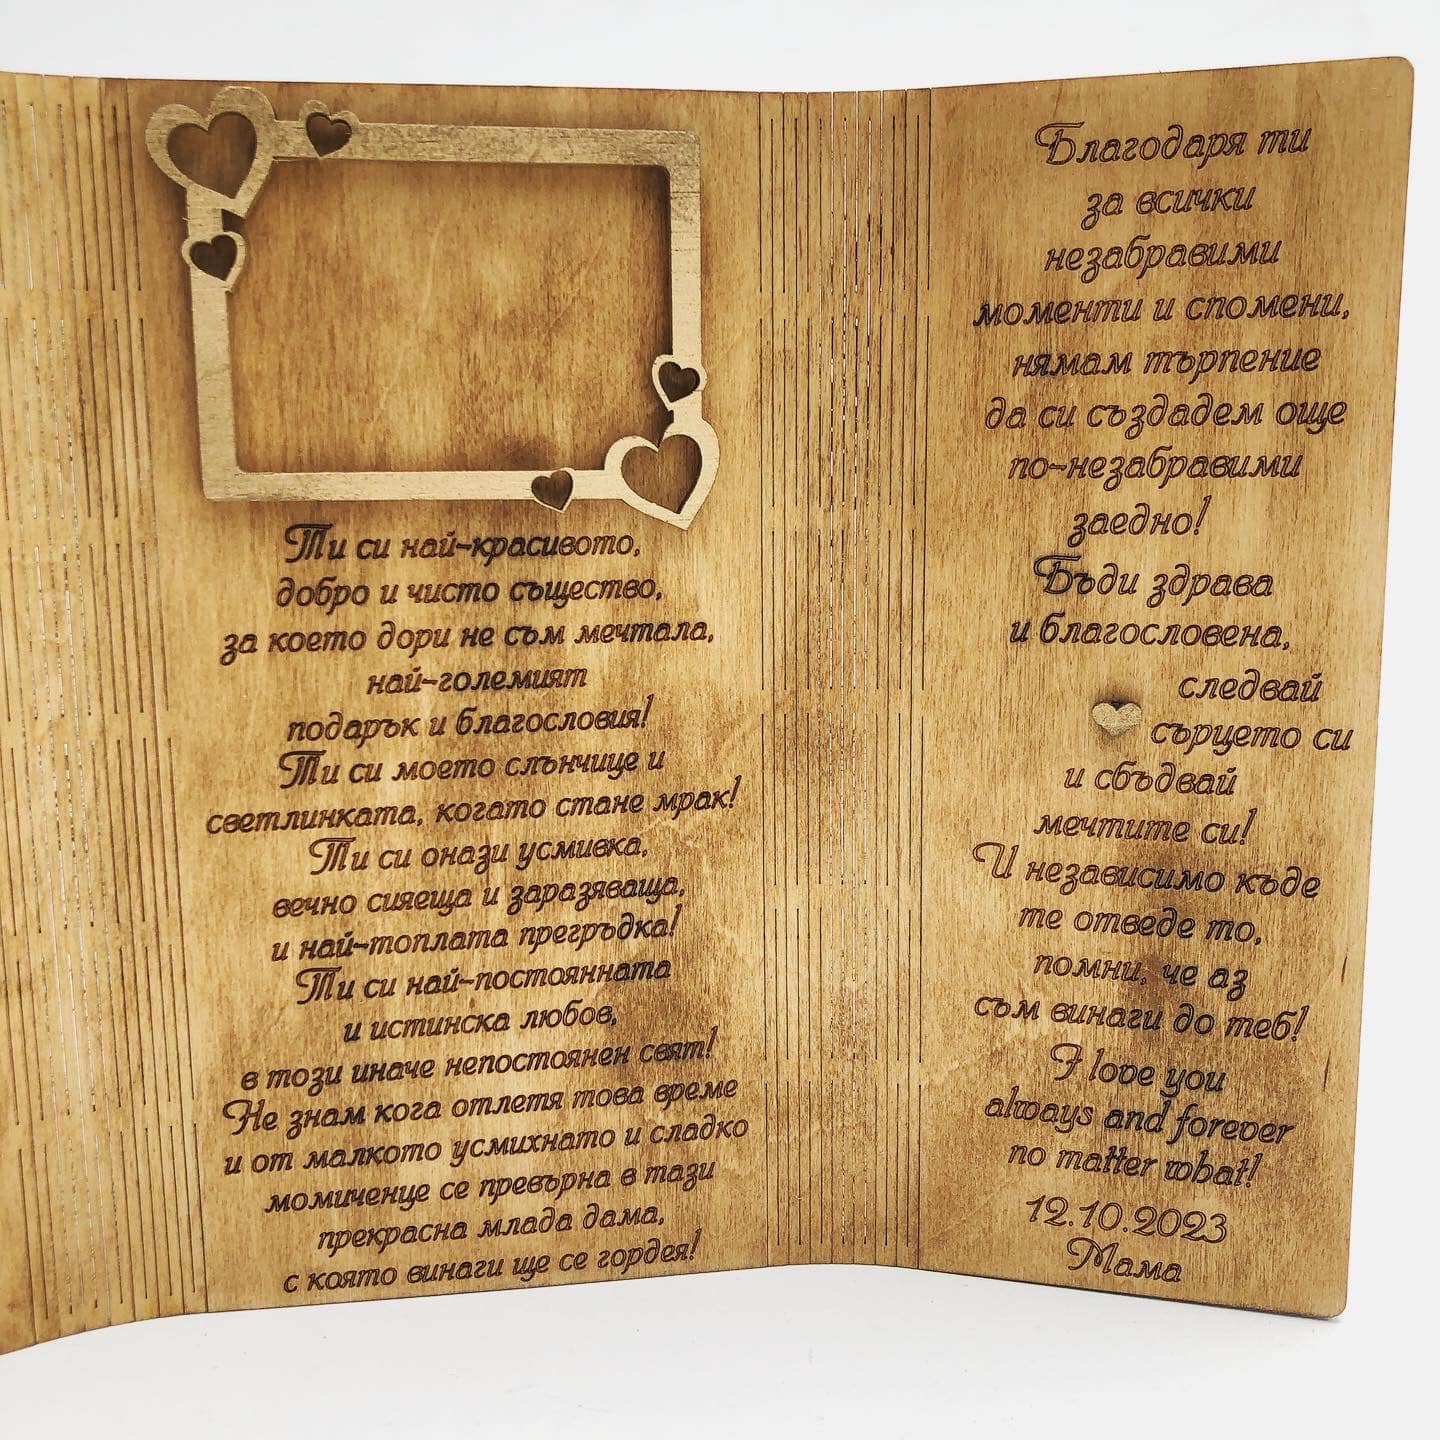 Ти си най-красивото,
добро и чисто същество,
за което дори не съм мечтала,
най-големият
подарък и благословия!
Ти си моето слънчице и
светлинката, когато стане мрак!
Ти си онази усмивка,
вечно сияеща и заразяваща,
и най-топлата прегръдка!
Ти си най-постоянната
и истинска любов,
в този иначе непостоянен свят!
Не знам кога отлетя това време
и от малкото усмихнато и сладко
момиченце се превърна в тази
прекрасна млада дама,
с която винаги ще се гордея!
Благодаря ти
за всички
незабравими
моменти и спомени,
нямам търпение
да си създадем още
по-незабравими
заедно!
Бъди здрава
и благословена,
следвай
сърцето си
и сбъдвай
мечтите си!
И независимо къде
те отведе то,
помни, че аз
съм винаги до теб!
I love you
always and forever
no matter what!
12.10.2023
Мама